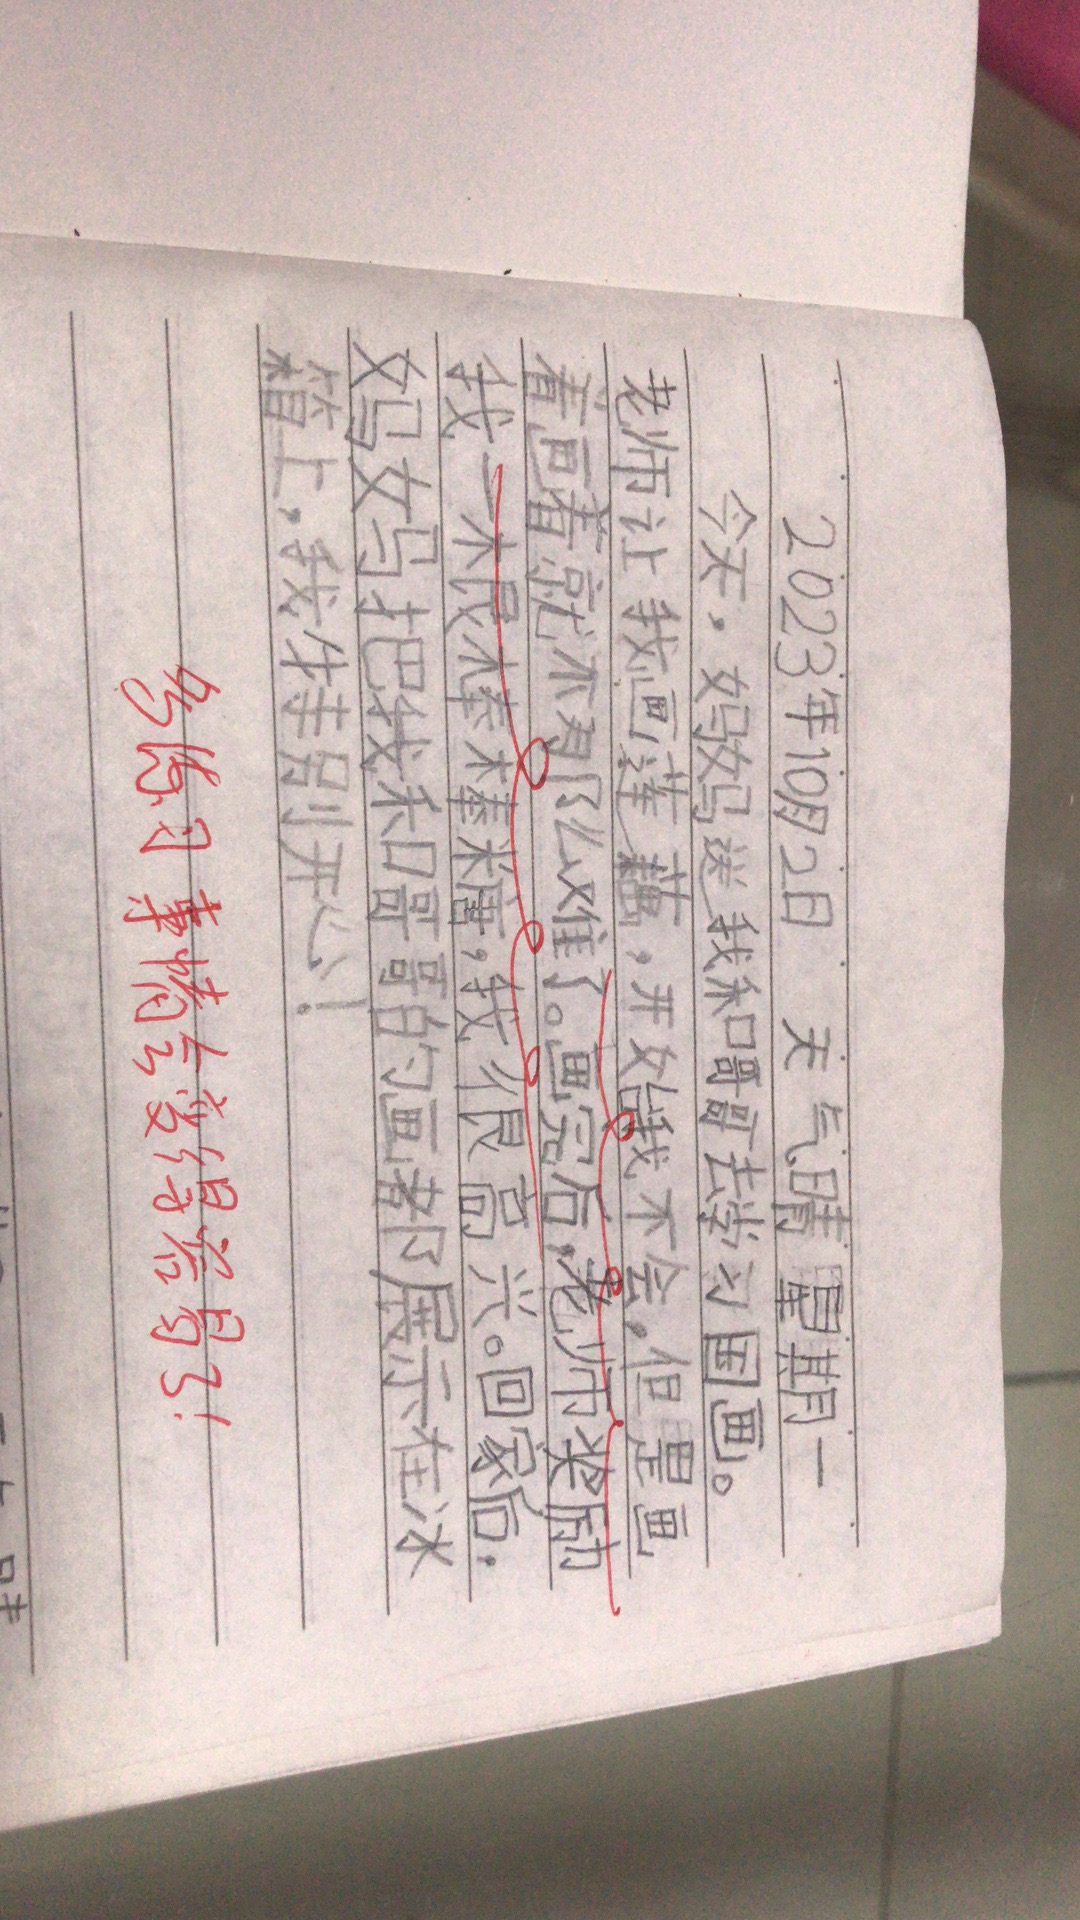 2023年10月2日 天气晴 星期一
今天,妈妈送我和哥哥去学习国画。
老师让我画莲藕,开始我不会,但是画
着画着就不那么难了。画完后,老师奖励
我一根棒棒糖,我很高兴。回家后,
妈妈把我和哥哥的画都展示在冰
箱上,我特别开心!